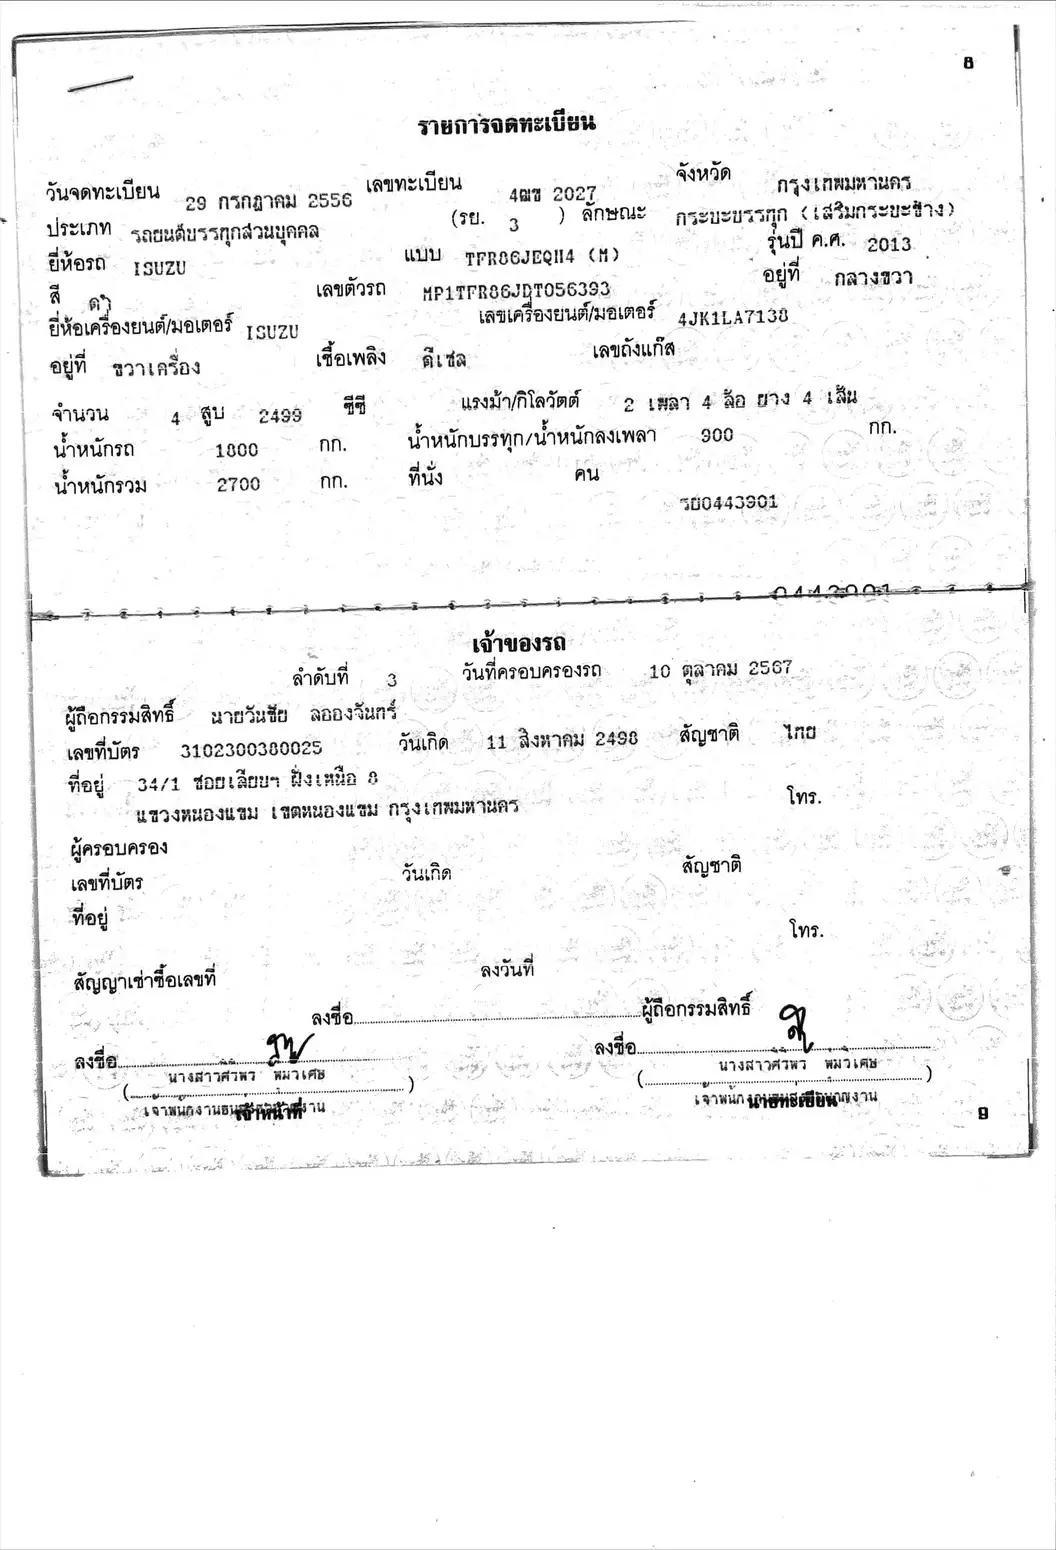 8
รายการจดทะเบียน
วันจดทะเบียน 29 กรกฎาคม 2556 เลขทะเบียน 4ฒข 2027 จังหวัด กรุงเทพมหานคร
ประเภท รถยนต์บรรทุกส่วนบุคคล (รย. 3 ) ลักษณะ กระบะบรรทุก (เสริมกระบะข้าง)
ยี่ห้อรถ ISUZU แบบ TFR86JEQH4 (M) รุ่นปี ค.ศ. 2013
สี ดำ เลขตัวรถ MP1TFR86JDT056393 อยู่ที่ กลางขวา
ยี่ห้อเครื่องยนต์/มอเตอร์ ISUZU เลขเครื่องยนต์/มอเตอร์ 4JK1LA7138
อยู่ที่ ขวาเครื่อง เชื้อเพลิง ดีเซล เลขถังแก๊ส
จำนวน 4 สูบ 2499 ซีซี แรงม้า/กิโลวัตต์ 2 เพลา 4 ล้อ ยาง 4 เส้น
น้ำหนักรถ 1800 กก. น้ำหนักบรรทุก/น้ำหนักลงเพลา 900 กก.
น้ำหนักรวม 2700 กก. ที่นั่ง คน
รย0443901
0443901
เจ้าของรถ
ลำดับที่ 3 วันที่ครอบครองรถ 10 ตุลาคม 2567
ผู้ถือกรรมสิทธิ์ นายวันชัย ลอองจันทร์
เลขที่บัตร 3102300380025 วันเกิด 11 สิงหาคม 2498 สัญชาติ ไทย
ที่อยู่ 34/1 ซอยเลียบฯ ฝั่งเหนือ 8
แขวงหนองแขม เขตหนองแขม กรุงเทพมหานคร โทร.
ผู้ครอบครอง
เลขที่บัตร วันเกิด สัญชาติ
ที่อยู่
โทร.
สัญญาเช่าซื้อเลขที่ ลงวันที่
ลงชื่อ ผู้ถือกรรมสิทธิ์
ลงชื่อ ลงชื่อ
นางสาวศิวพร พิมวิเศษ นางสาวศิวพร พิมวิเศษ
( ) ( )
เจ้าหน้าที่ นายทะเบียน
9